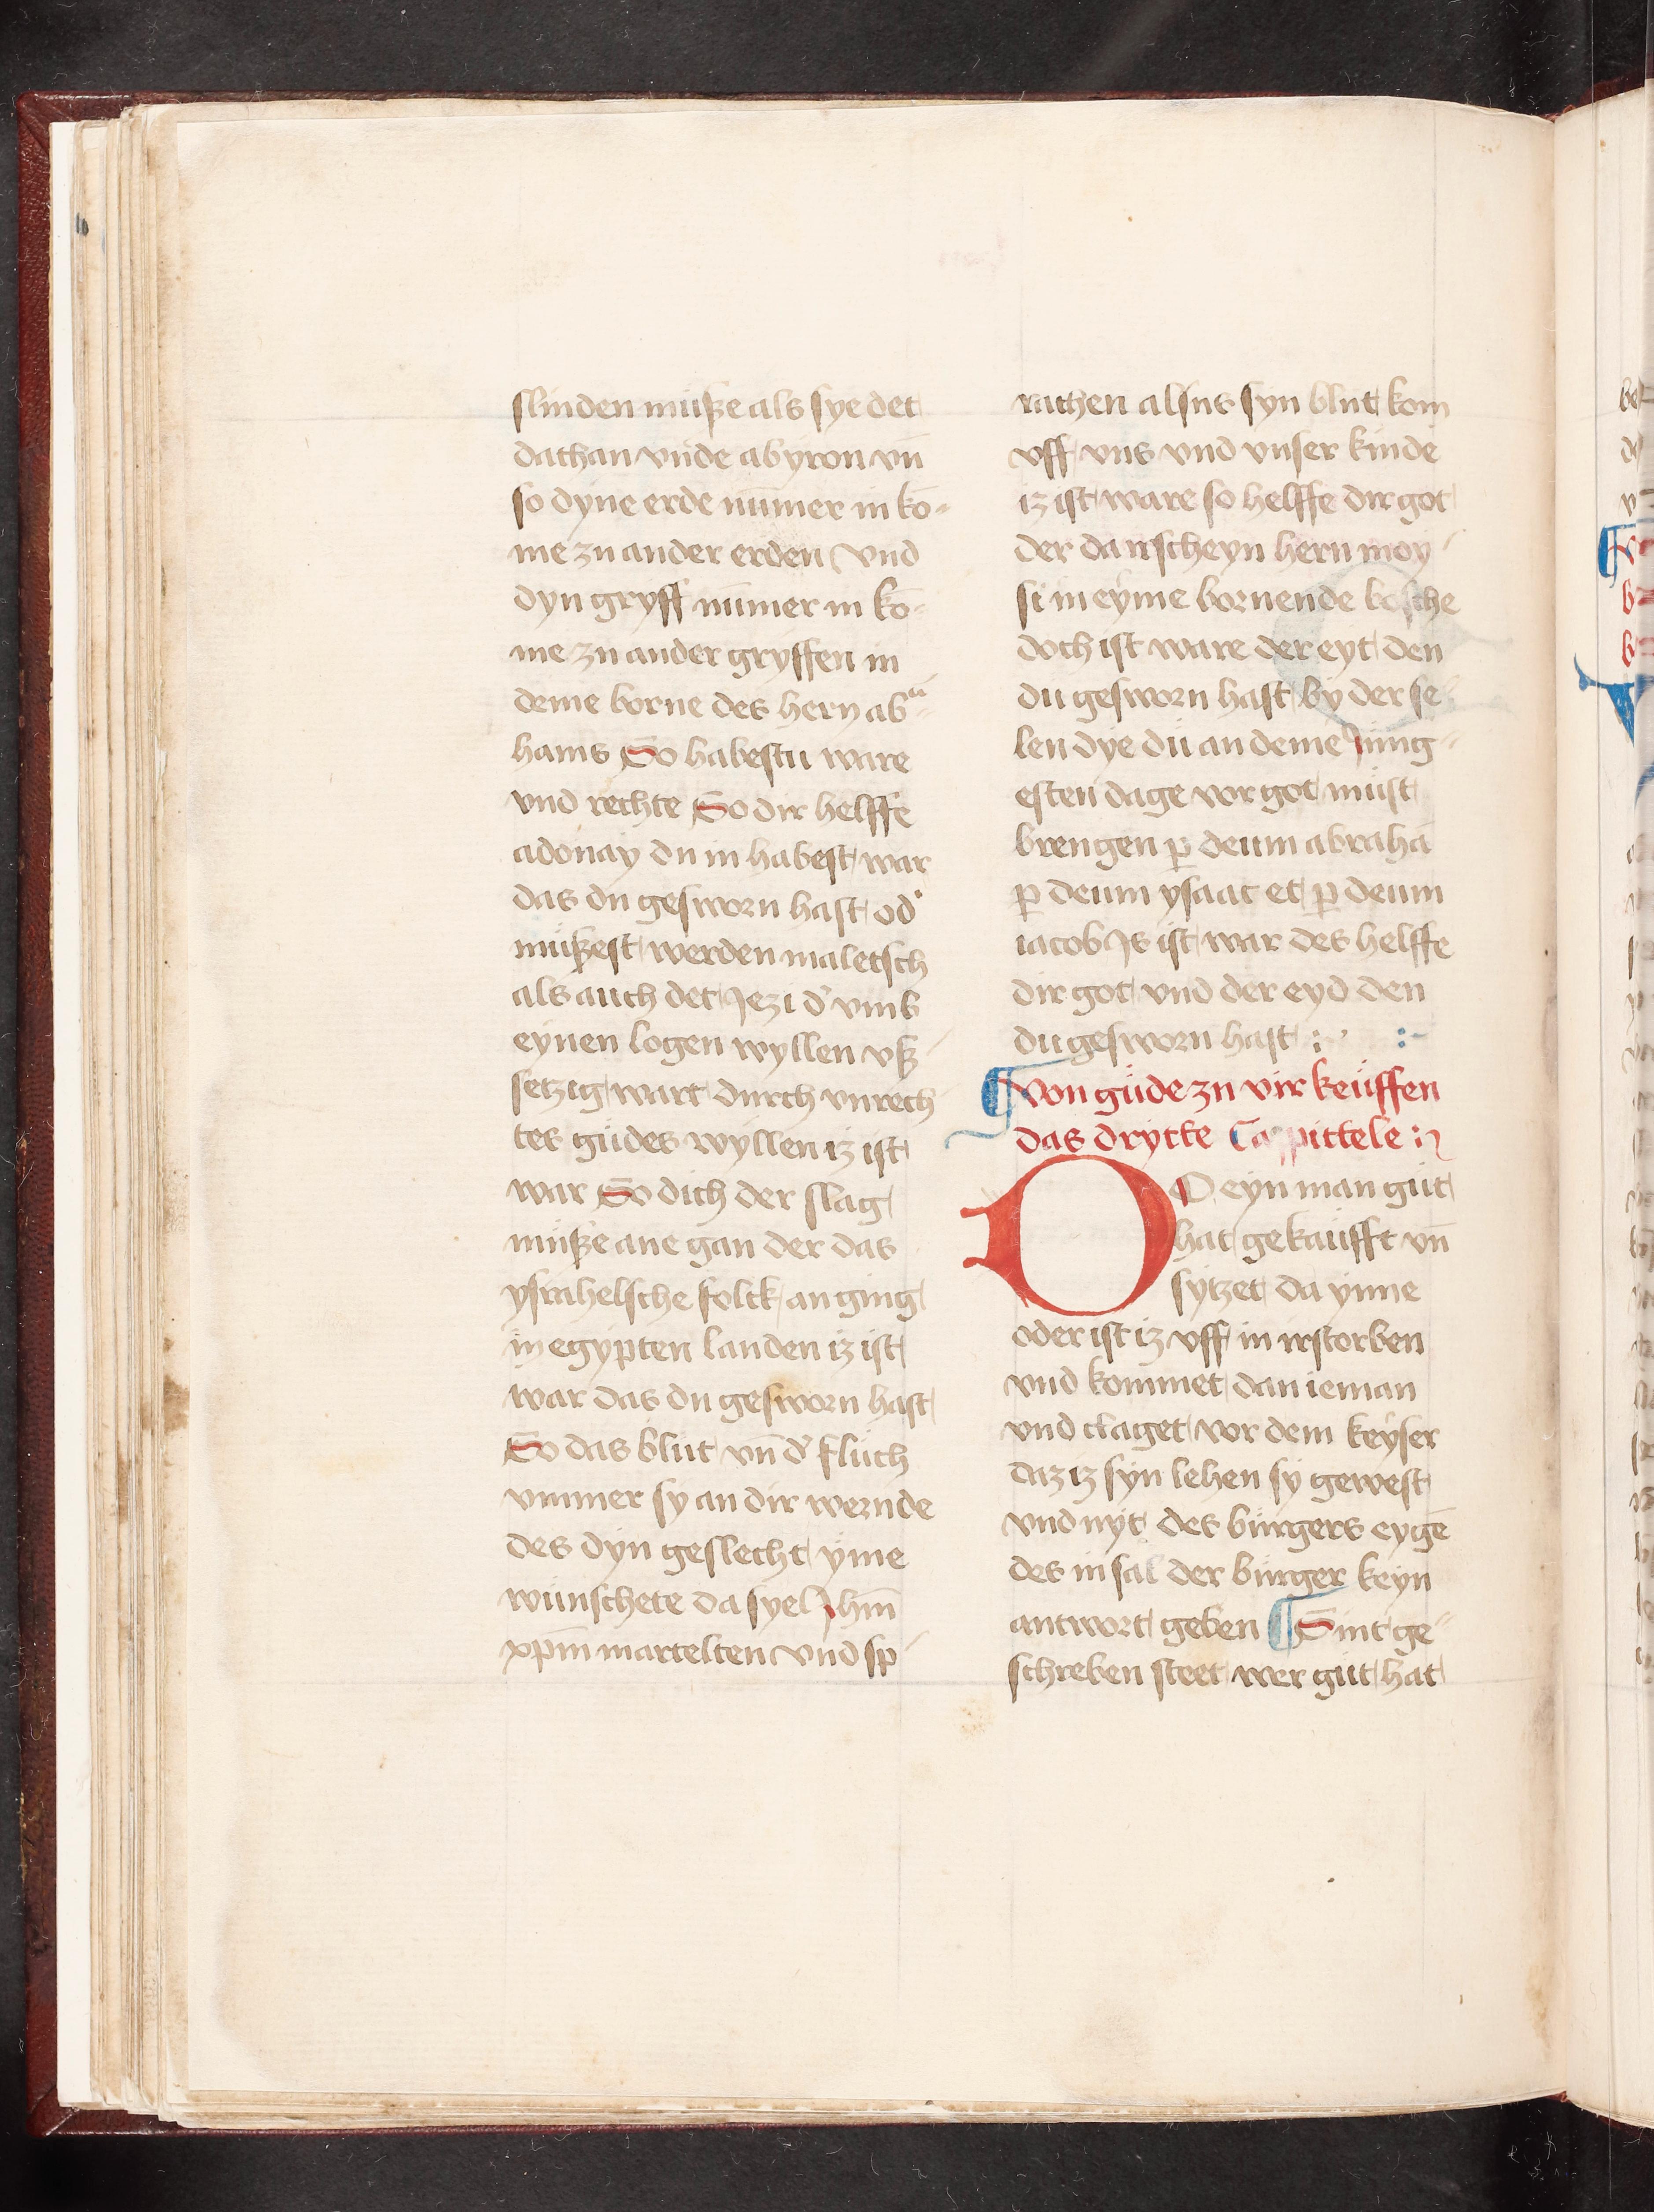 slinden müße als sye det
dathan vnde abyron vn̄
so dyne erde nūmer in ko-
me zu ander erden vnd
dyn gryff nūmer in ko-
me zu ander gryffen in
deme borne des hern abᵃ-
hams So habestu ware
vnd rechte So dir helffe
adonay du in habest war
das du gesworn hast od'
müßest werden maletsch
als auch det Jezi d' vmb
eynen logen wyllen vß-
setzig wart durch vnrech
tes güdes wyllen iz ist
war So dich der slag
müße ane gan der das
ysrahelsche folck an ging
in egypten landen iz ist
war das du gesworn hast
So das blüt vn̄ d' flüch
vmmer sy an dir wernde
des dyn geslecht yme
wünschete da sye Jhm̄
xp̄m martelten vnd sp-
rachen alsus syn blut kom
vff vns vnd vnser kinde
iz ist ware so helffe dir got
der da irscheyn hern moy-
si in eyme bornende bosche
doch ist ware der eyt den
du gesworn hast by der se-
len dye dü an deme Jüng-
esten dage vor got müst
brengen ꝑ deum abrahā
ꝑ deum ysaac et ꝑ deum
iacob Js ist war des helffe
dir got vnd der eyd den
du gesworn hast :· :-
¶ Von güde zu vir keüffen
das drytte Cappittele :
O Ob eyn man güt
hat gekaüfft vn̄
sytzet da ynne
oder ist iz vff in irstorben
vnd kommet dan ieman
vnd claget vor dem keyser
daz iz syn lehen sy gewest
vnd nyt des bürgers eygē
des in sal der bürger keyn
antwort geben ¶ Sint ge-
schreben steet wer güt hat